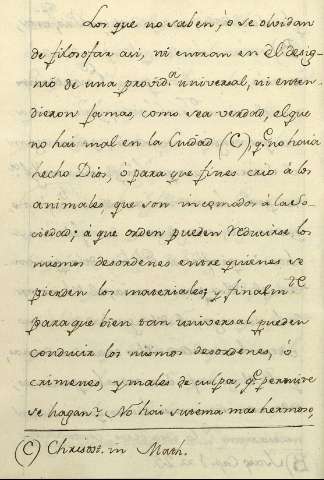 Los que no saben, ó se olvidan
de filosofar asi, ni entran en el desig-
nio de una provid.ª universal, ni enten-
dieron jamas, como sea verdad, el que
no hai mal en la Ciudad (C) q.e no haia
hecho Dios, ó para que fines crió á los
animales, que son incomodos á la So-
ciedad; á que orden pueden reducirse los
mismos desordenes entre quienes se
pierden los materiales; y finalm.te
para que bien tan universal pueden
conducir los mismos desordenes, ó
crimenes, y males de culpa, q.e permite
se hagan. No hai sistema mas hermoso,
(C) Chrisost. in Math.